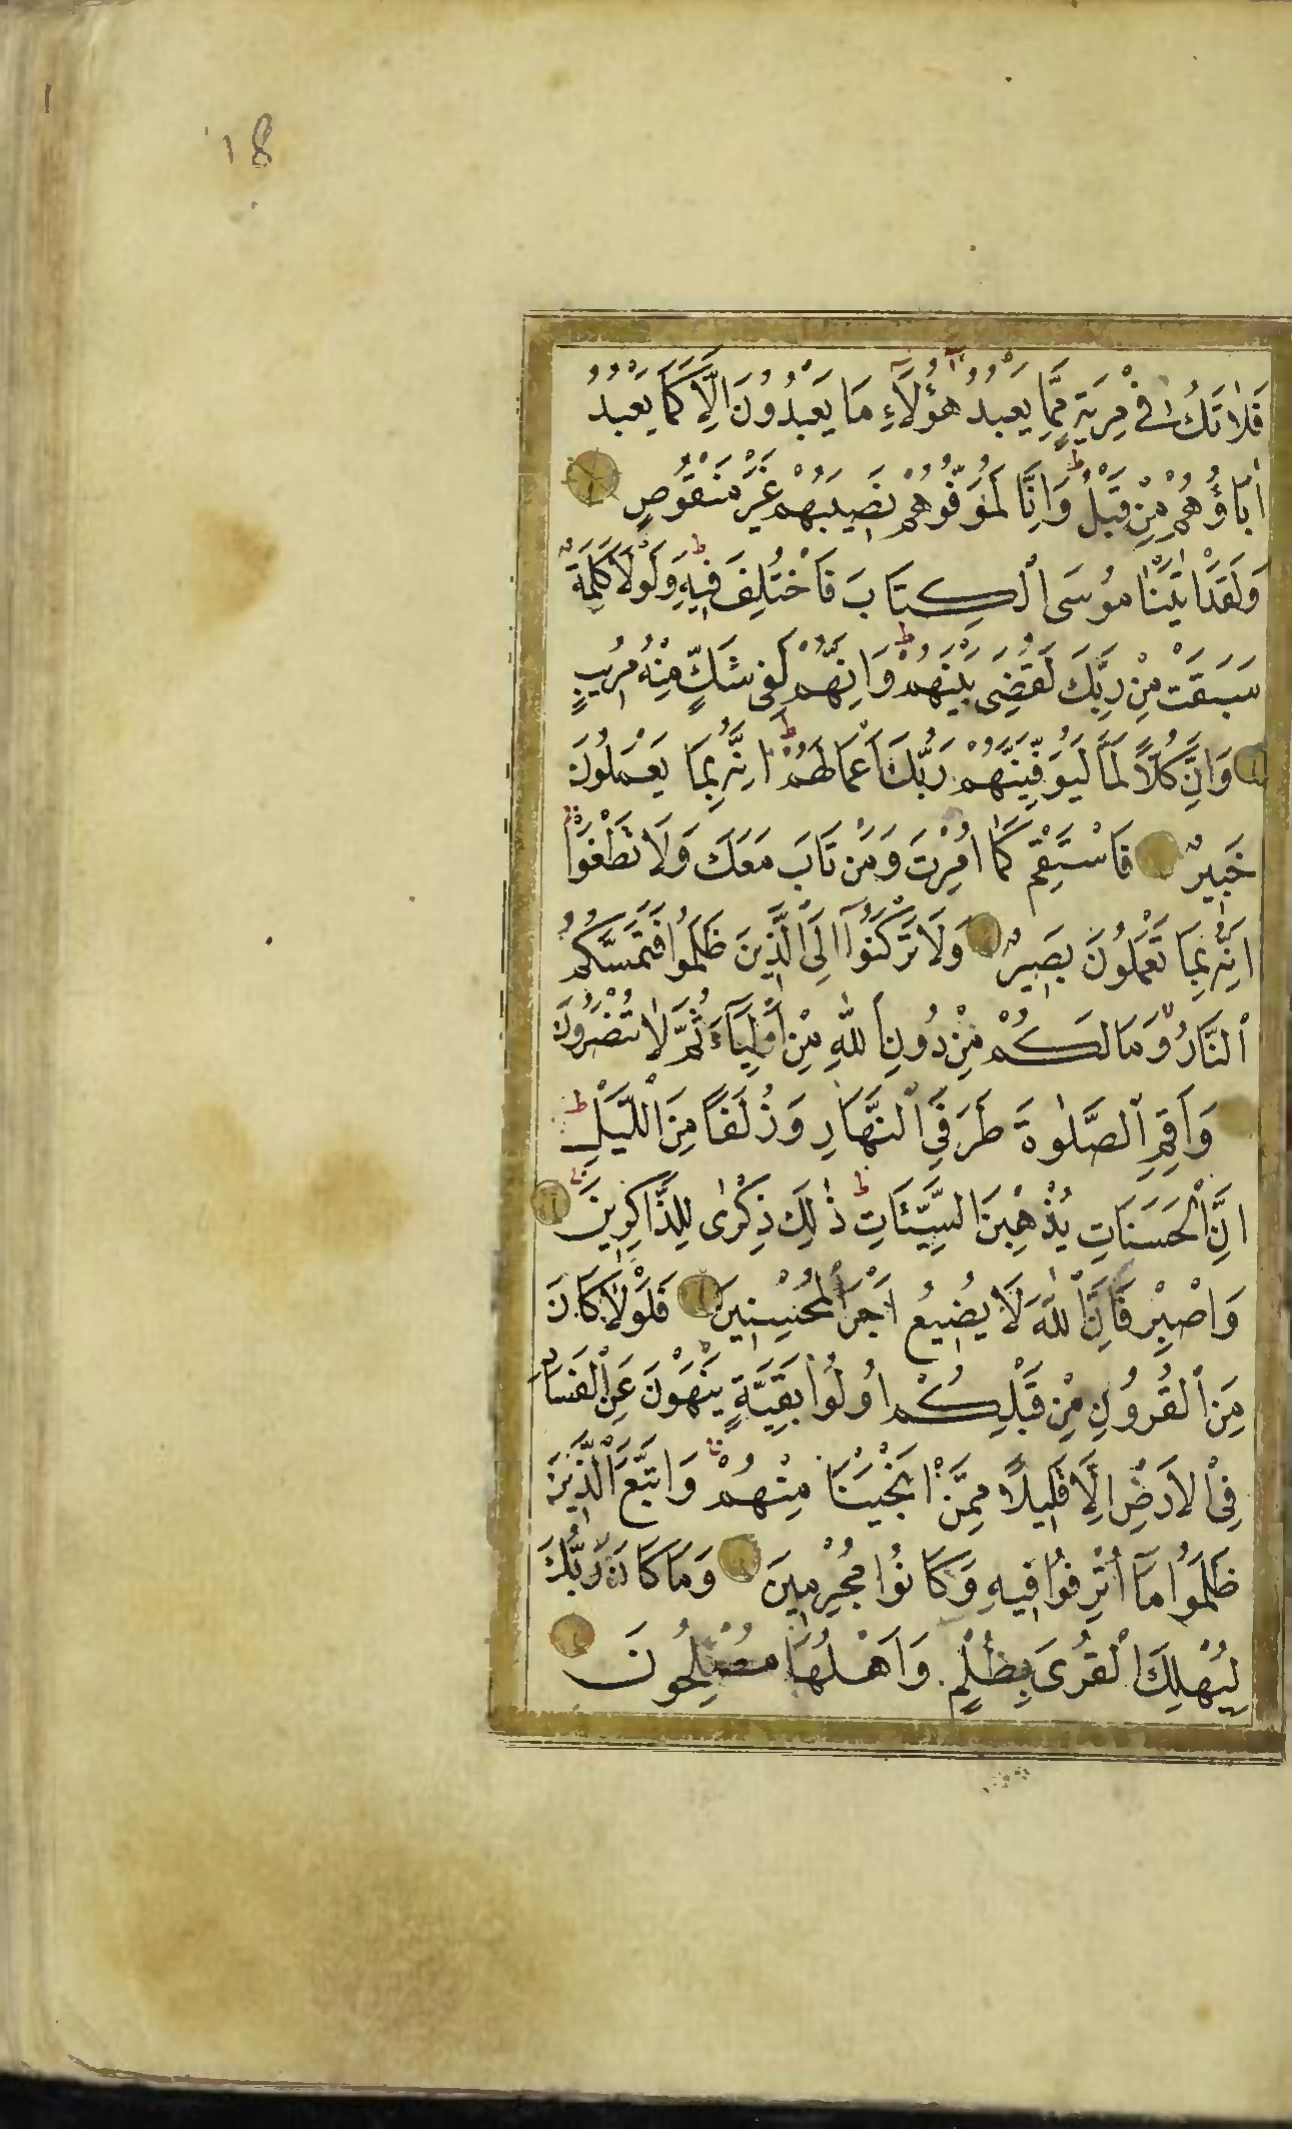 18
فَلَا تَكُ فِي مِرْيَةٍ مِمَّا يَعْبُدُ هٰؤُلَاءِ مَا يَعْبُدُونَ اِلَّا كَمَا يَعْبُدُ
اٰبَاؤُهُمْ مِنْ قَبْلُ وَاِنَّا لَمُوَفُّوهُمْ نَصِيبَهُمْ غَيْرَ مَنْقُوصٍ
وَلَقَدْ اٰتَيْنَا مُوسَى الْكِتَابَ فَاخْتُلِفَ فِيهِ وَلَوْلَا كَلِمَةٌ
سَبَقَتْ مِنْ رَبِّكَ لَقُضِيَ بَيْنَهُمْ وَاِنَّهُمْ لَفِي شَكٍّ مِنْهُ مُرِيبٍ
وَاِنَّ كُلًّا لَمَّا لَيُوَفِّيَنَّهُمْ رَبُّكَ اَعْمَالَهُمْ اِنَّهُ بِمَا يَعْمَلُونَ
خَبِيرٌ فَاسْتَقِمْ كَمَا اُمِرْتَ وَمَنْ تَابَ مَعَكَ وَلَا تَطْغَوْا
اِنَّهُ بِمَا تَعْمَلُونَ بَصِيرٌ وَلَا تَرْكَنُوا اِلَى الَّذِينَ ظَلَمُوا فَتَمَسَّكُمُ
النَّارُ وَمَا لَكُمْ مِنْ دُونِ اللّٰهِ مِنْ اَوْلِيَاءَ ثُمَّ لَا تُنْصَرُونَ
وَاَقِمِ الصَّلٰوةَ طَرَفَيِ النَّهَارِ وَزُلَفًا مِنَ اللَّيْلِ
اِنَّ الْحَسَنَاتِ يُذْهِبْنَ السَّيِّئَاتِ ذٰلِكَ ذِكْرٰى لِلذَّاكِرِينَ
وَاصْبِرْ فَاِنَّ اللّٰهَ لَا يُضِيعُ اَجْرَ الْمُحْسِنِينَ فَلَوْلَا كَانَ
مِنَ الْقُرُونِ مِنْ قَبْلِكُمْ اُولُوا بَقِيَّةٍ يَنْهَوْنَ عَنِ الْفَسَادِ
فِي الْاَرْضِ اِلَّا قَلِيلًا مِمَّنْ اَنْجَيْنَا مِنْهُمْ وَاتَّبَعَ الَّذِينَ
ظَلَمُوا مَا اُتْرِفُوا فِيهِ وَكَانُوا مُجْرِمِينَ وَمَا كَانَ رَبُّكَ
لِيُهْلِكَ الْقُرٰى بِظُلْمٍ وَاَهْلُهَا مُصْلِحُونَ